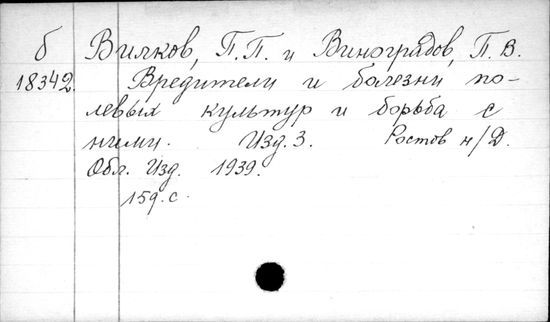 б Вилков, П.П. и Виноградов, П.В.
18342. Вредители и болезни по-
левых культур и борьба с
ними. Изд. 3. Ростов н/Д.
Обл. Изд. 1939.
159.с.